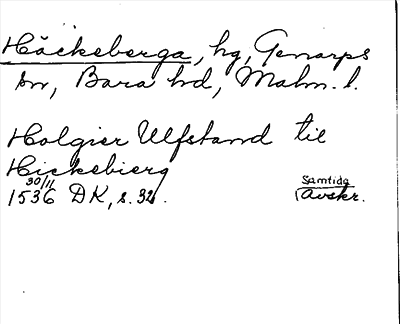 Häckeberga, hg, Genarps
sn, Bara hd, Malm. l.
Holgier Ulfstand til
Hickebierg
30/11
1536 DK, s. 32.
Samtida
Avskr.